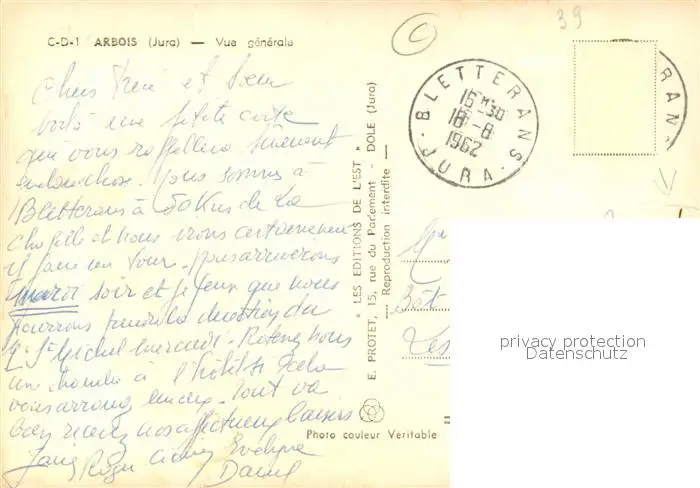 C-D-1 ARBOIS (Jura) — Vue générale
39
et Sœur
voilà une petite carte
que vous rappellera sûrement
quelque chose. Nous sommes à
Blétterans à 50 Kms de La
Chapelle et nous irons certainement
y faire un tour. nous arriverons
mardi soir et je pense que nous
pourrons prendre la direction du
St Michel mercredi. Retenez nous
une chambre à l'hôtel si cela
vous arrange mieux. Tout va
bien recevez nos affectueux baisers
Roger Evelyne
Daniel
" LES EDITIONS DE L'EST "
E. PROTET, 15, rue du Parlement - DOLE (Jura)
— Reproduction interdite —
Photo couleur Véritable
BLETTERANS
16 H 30
18 - 8
1962
JURA
RANS
Bât
Les
privacy protection
Datenschutz